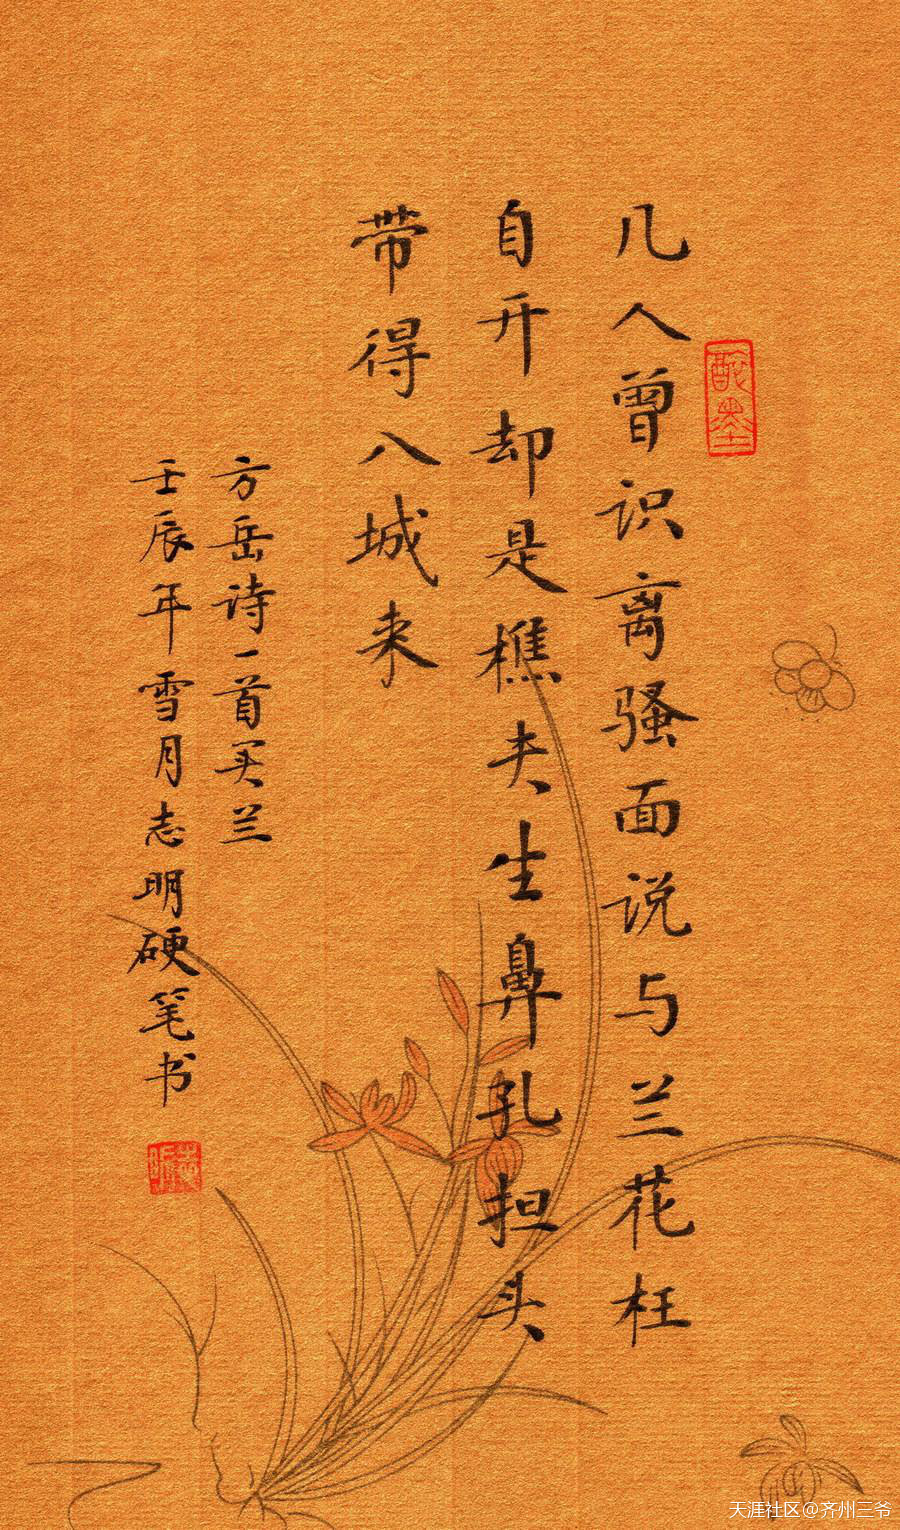 几人曾识离骚面说与兰花枉
自开却是樵夫生鼻孔担头
带得八城来
方岳诗一首买兰
壬辰年雪月志明硬笔书
志明
天涯社区@齐州三爷